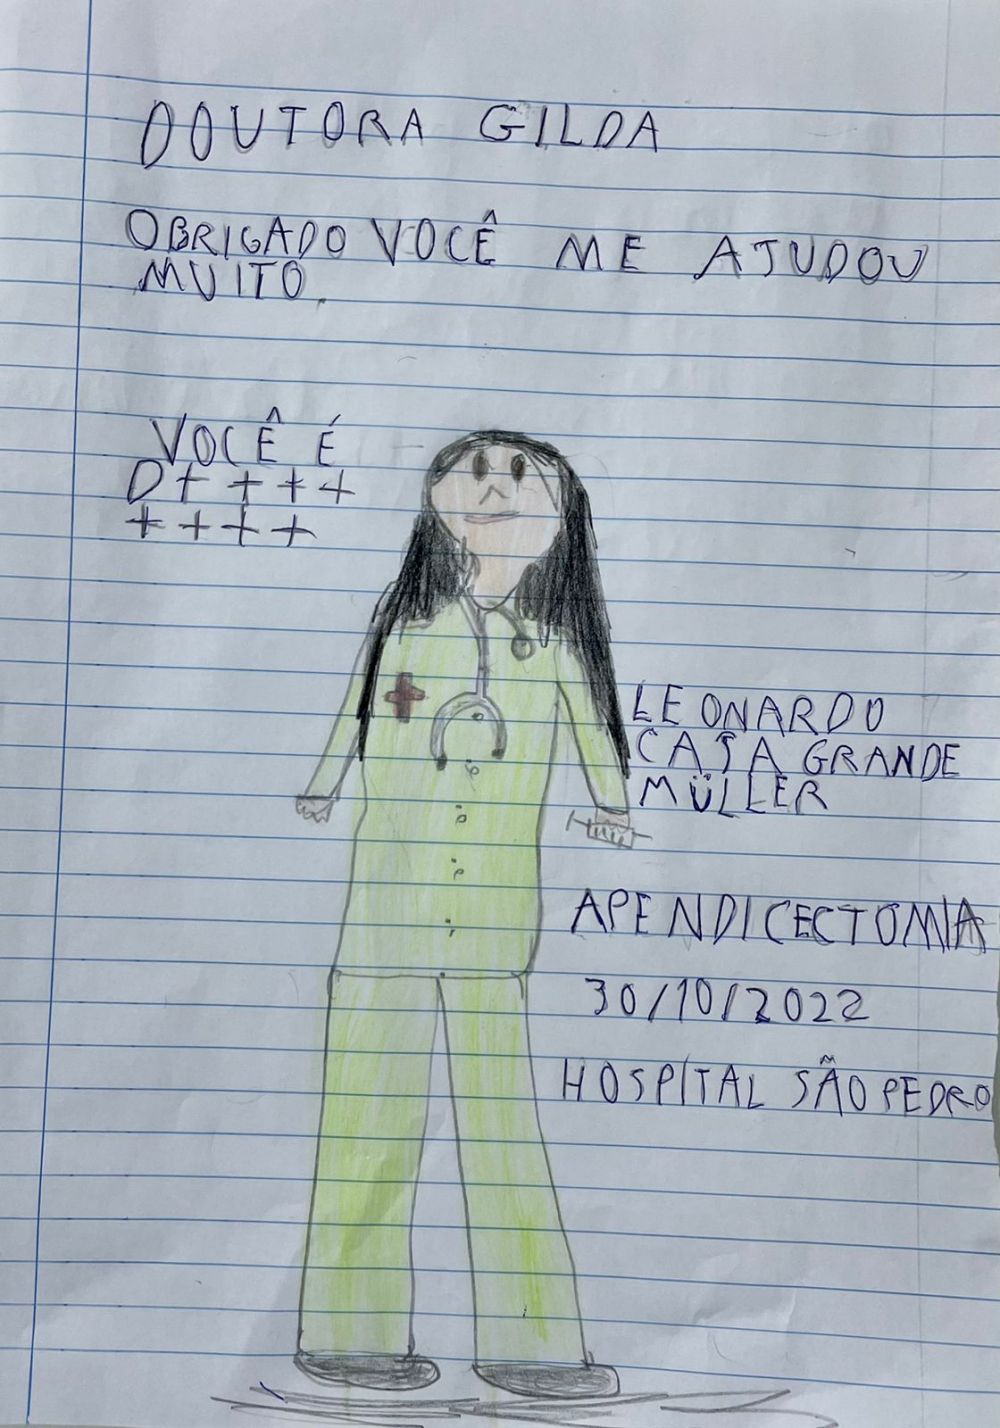 DOUTORA GILDA
OBRIGADO VOCÊ ME AJUDOU
MUITO.
VOCÊ É
D++++
++++
LEONARDO
CASA GRANDE
MÜLLER
APENDICECTOMIA
30/10/2022
HOSPITAL SÃO PEDRO